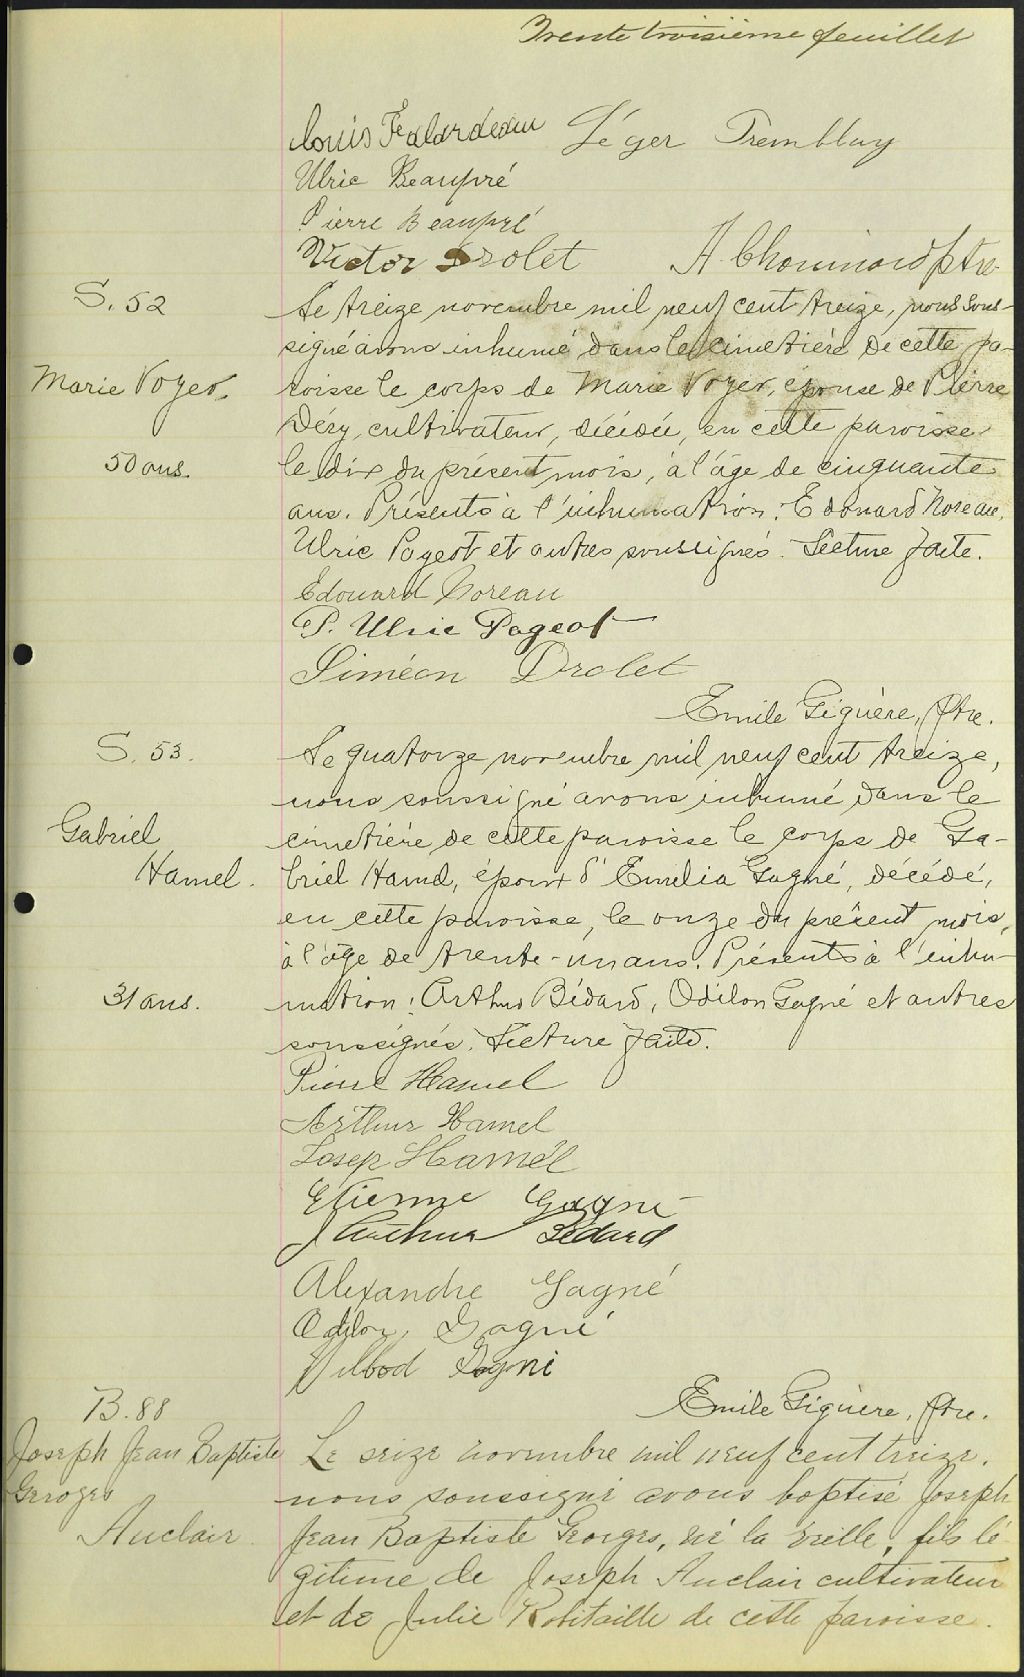 Trente troisième feuillet
Louis Falardeau Léger Tremblay
Ulric Beaupré
Pierre Beaupré
Victor Drolet A. Chouinard ptre
S. 52
Le treize novembre mil neuf cent treize, nous sous-
signé avons inhumé dans le cimetière de cette pa-
Marie Voyer,
roisse le corps de Marie Voyer, épouse de Pierre
Déry, cultivateur, décédée, en cette paroisse
50 ans.
le dix du présent mois, à l'âge de cinquante
ans. Présents à l'inhumation: Edouard Noreau,
Ulric Pageot et autres soussignés. Lecture faite.
Edouard Noreau
P. Ulric Pageot
Siméon Drolet
Emile Giguère, Ptre.
S. 53.
Le quatorze novembre mil neuf cent treize,
nous soussigné avons inhumé dans le
Gabriel
cimetière de cette paroisse le corps de Ga-
Hamel.
briel Hamel, époux d'Emelia Gagné, décédé,
en cette paroisse, le onze du présent mois,
à l'âge de trente-un ans. Présents à l'inhu-
31 ans.
mation: Arthur Bédard, Odilon Gagné et autres
soussignés. Lecture faite.
Pierre Hamel
Arthur Hamel
Josep Hamel
Etienne Gagné
J Arthur Bédard
Alexandre Gagné
Odilon Gagné
Wilbod Gagné
Emile Giguère, Ptre.
B. 88
Joseph Jean Baptiste
Georges
Auclair
Le seize novembre mil neuf cent treize.
nous soussigné avons baptisé Joseph
Jean Baptiste Georges, né la veille, fils lé
gitime de Joseph Auclair cultivateur
et de Julie Robitaille de cette paroisse.